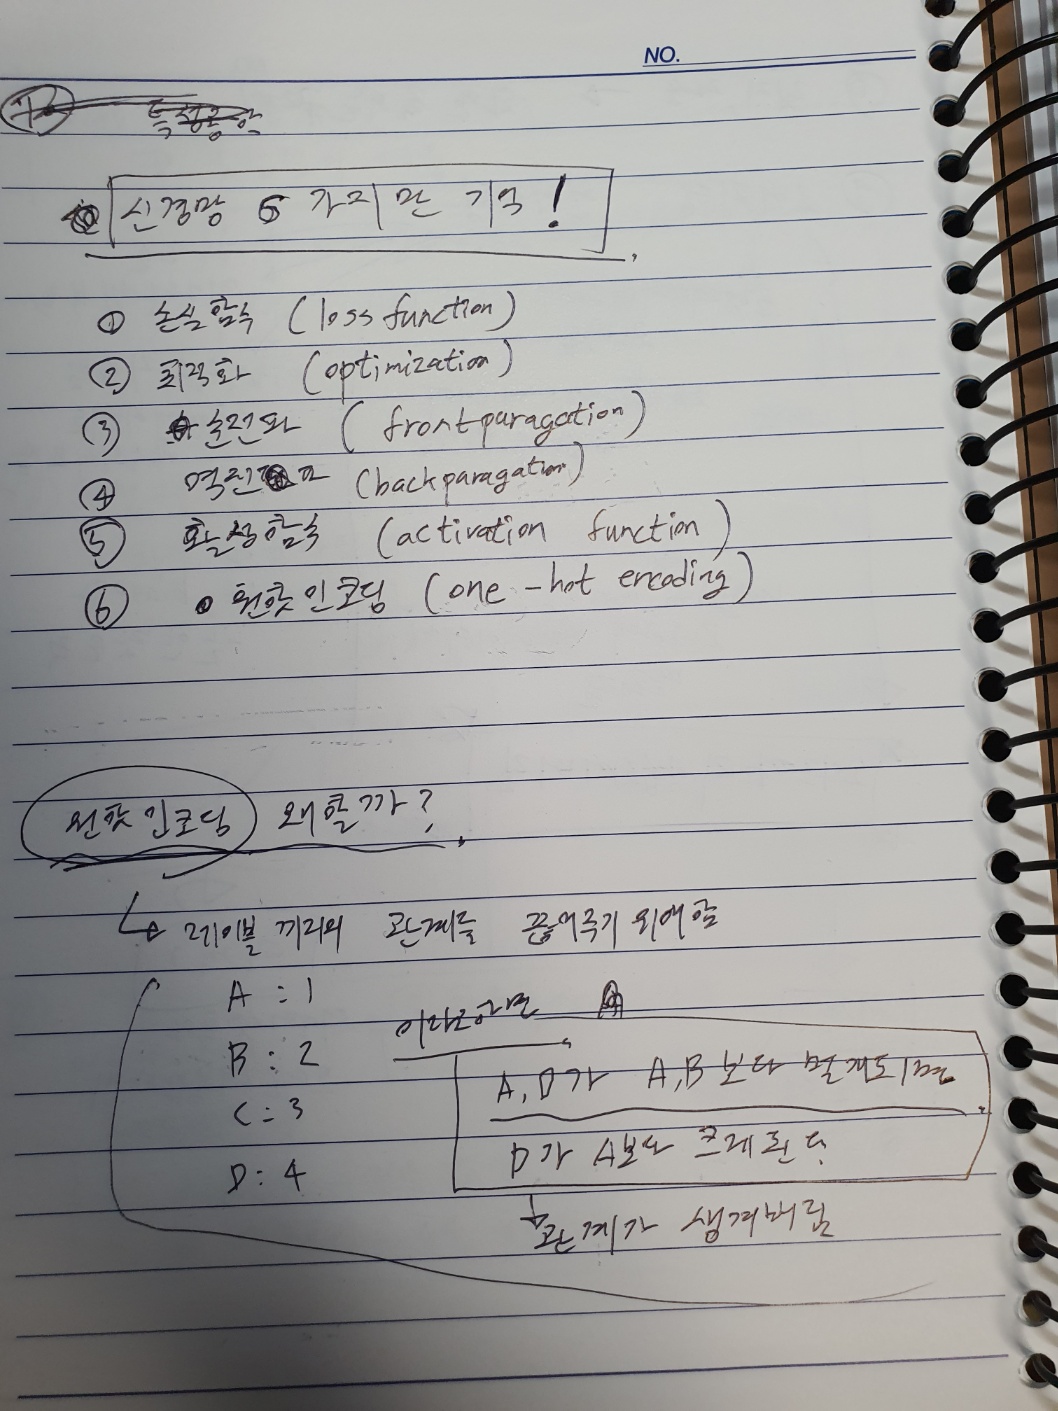 NO.
신경망 6가지만 기억!
① 손실함수 (loss function)
② 최적화 (optimization)
③ 순전파 (frontparagation)
④ 역전파 (backparagation)
⑤ 활성함수 (activation function)
⑥ 원핫인코딩 (one-hot encoding)
원핫인코딩 왜할까?
레이블끼리의 관계를 끊어주기 위해함
A : 1
이라고하면
B : 2
A, D가 A,B보다 멀게되며
C : 3
D가 A보다 크게된다.
D : 4
관계가 생겨버림